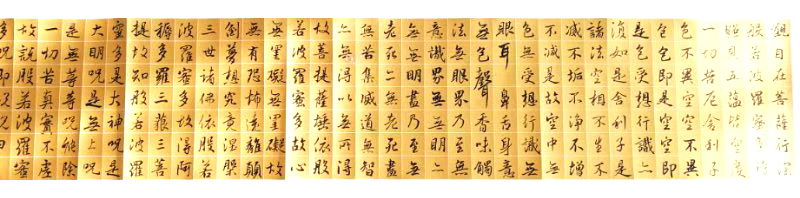 觀自在菩薩行深
般若波羅蜜多時
照見五蘊皆空度
一切苦厄舍利子
色不異空空不異
色色即是空空即
是色受想行識亦
復如是舍利子是
諸法空相不生不
滅不垢不淨不增
不減是故空中無
色無受想行識無
眼耳鼻舌身意
無色聲香味觸
法無眼界乃至無
意識界無無明亦
無無明盡乃至無
老死亦無老死盡
無苦集滅道無智
亦無所得以無所得
故菩提薩埵依般
若波羅蜜多故心
無罣礙無罣礙故
無有恐怖遠離顛
倒夢想究竟涅槃
三世諸佛依般若
波羅蜜多故得阿
耨多羅三藐三菩
提故知般若波羅
蜜多是大神呪是
大明呪是無上呪
是無等等呪能除
一切苦真實不虛
故說般若波羅蜜
多呪即說呪曰